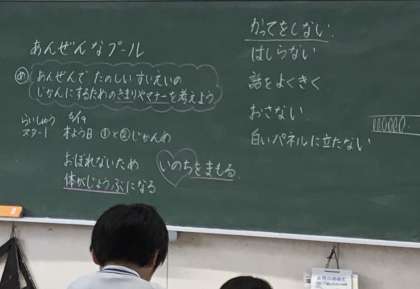 あんぜんなプール
め あんぜんで たのしい すいえいの
じかんにするためのきまりやマナーを考えよう
らいしゅう 6/19
スタート 木よう日 ①と②じかんめ
おぼれないため いのちをまもる
体がじょうぶになる
かってをしない
はしらない
話をよくきく
おさない
白いパネルに立たない